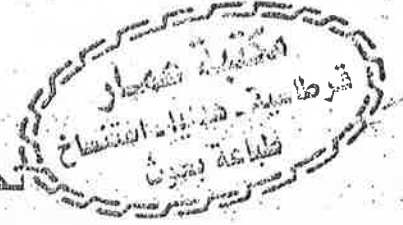 مكتبة
قرطاسية - هدايا - استنساخ
طباعة بحوث